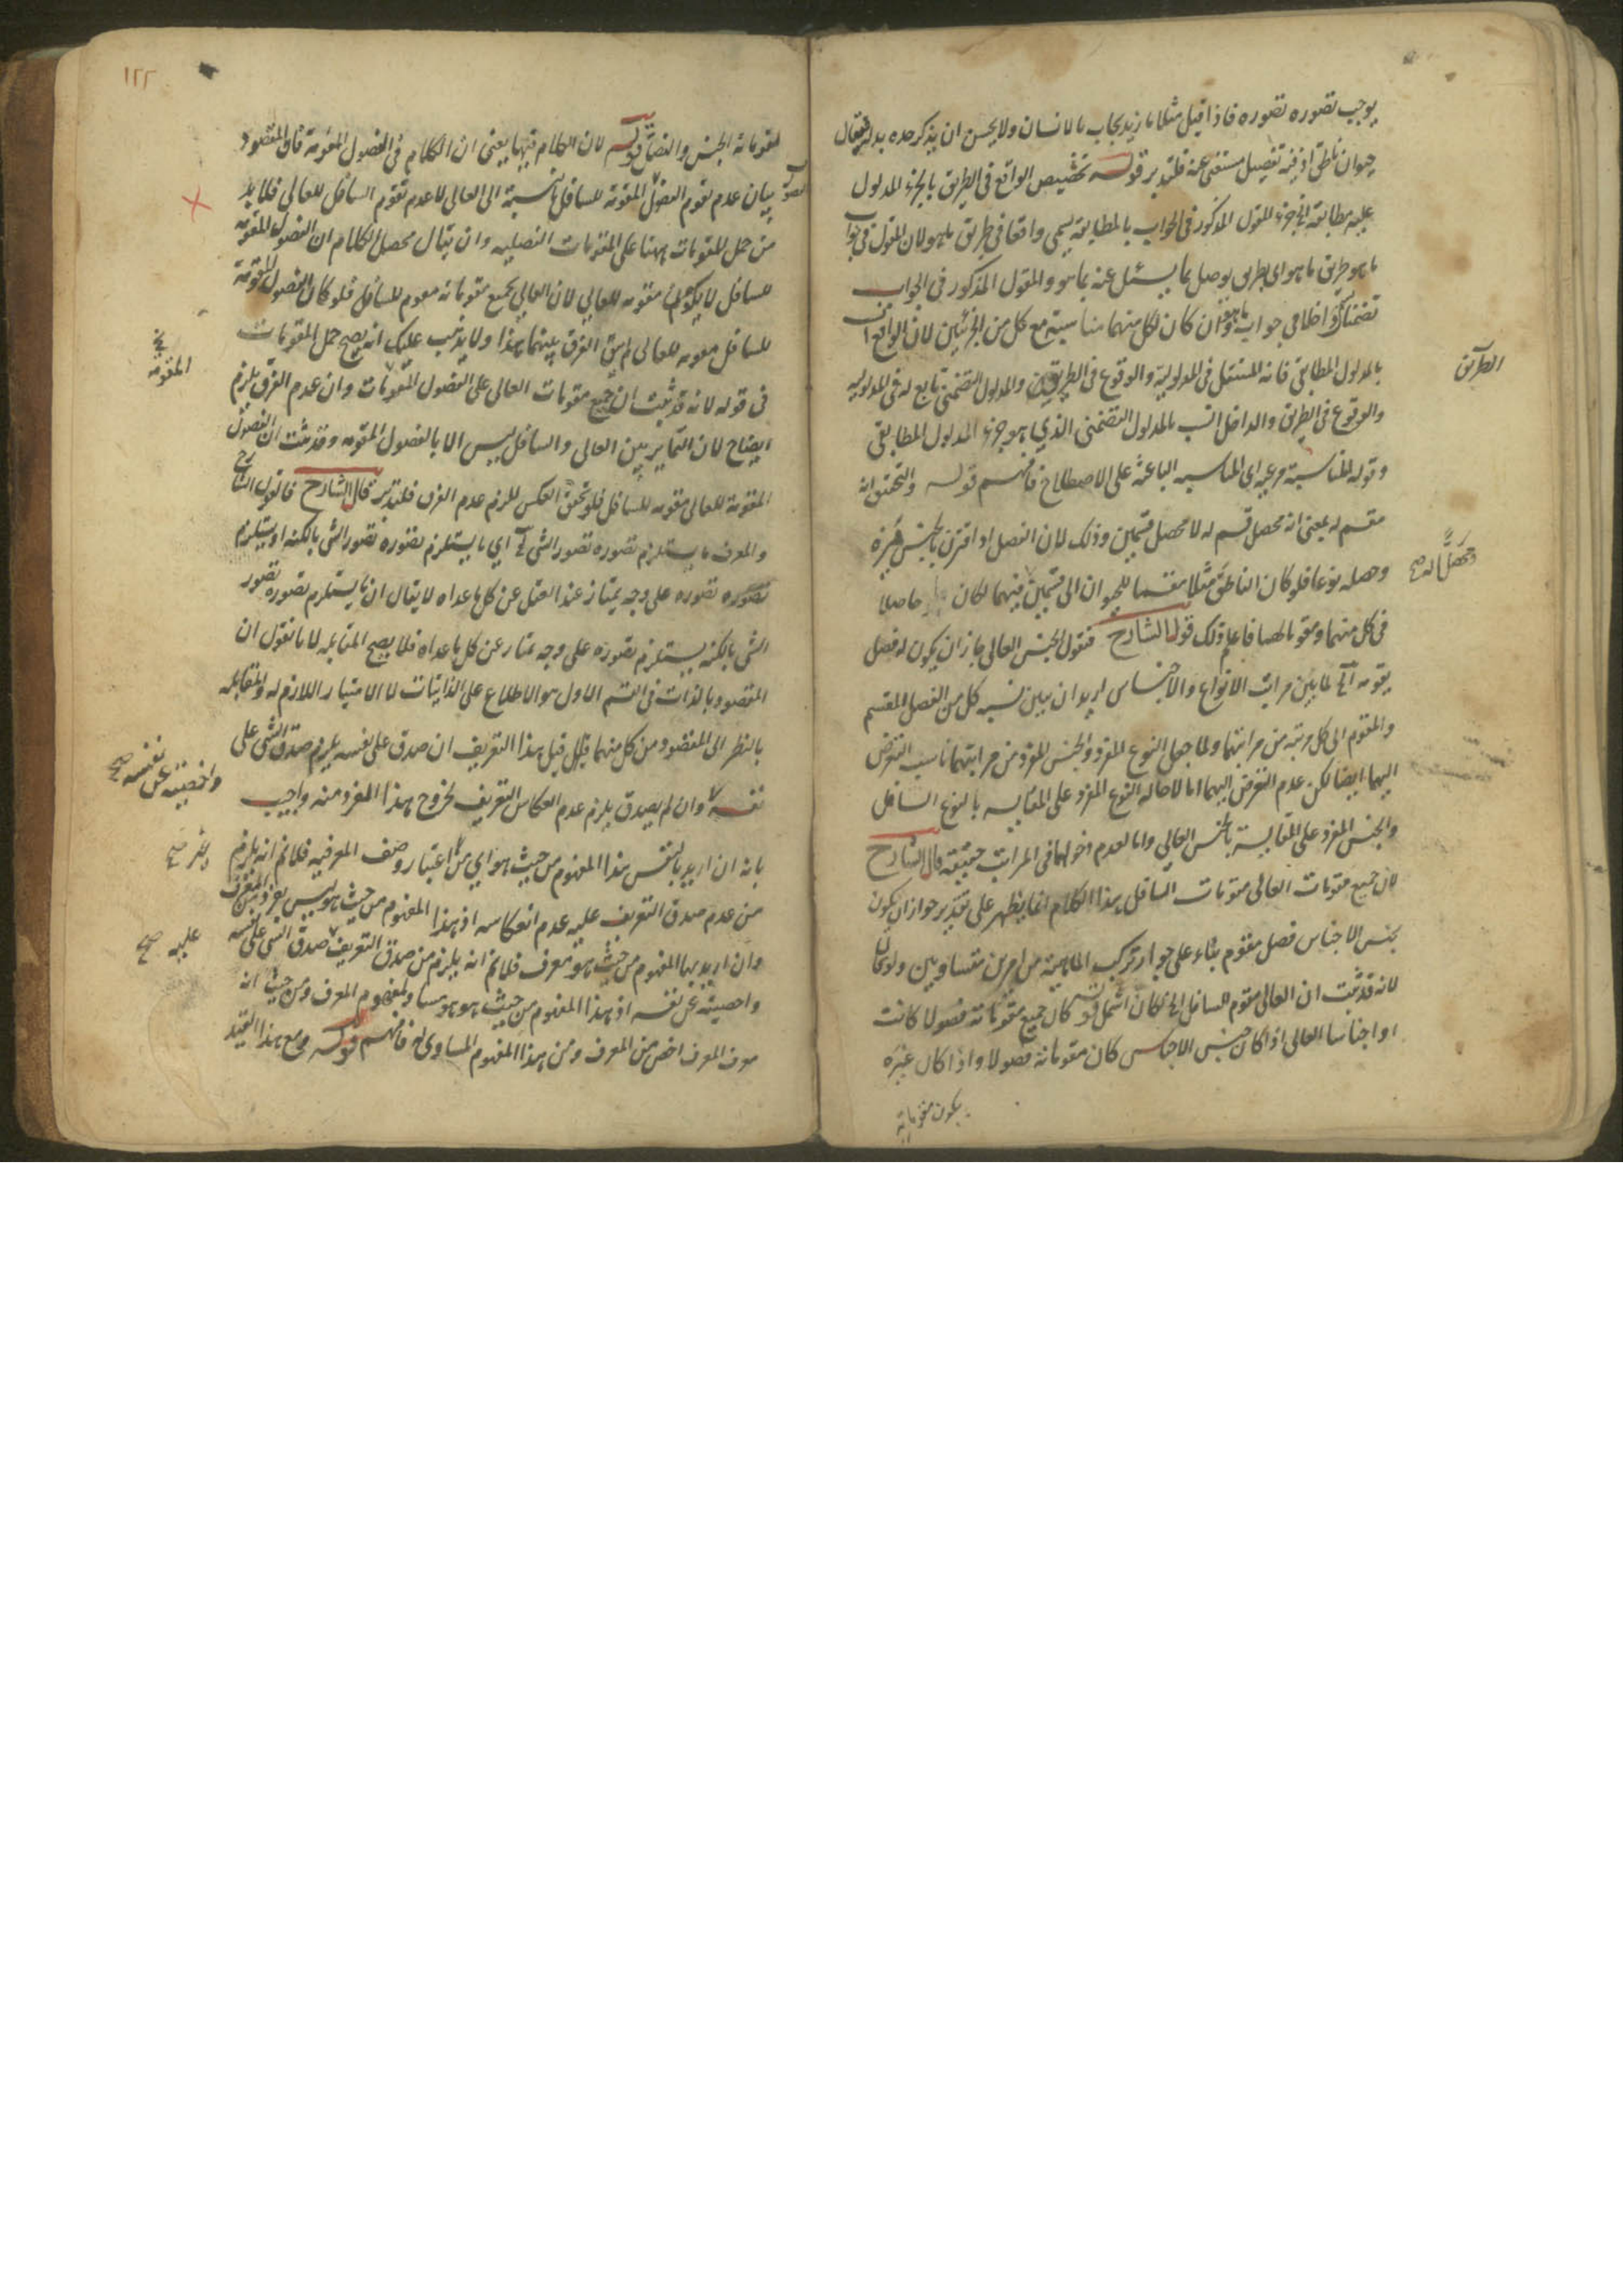 يوجب تصوره تصوره فاذا قيل مثلا ما زيد يجاب بالانسان ولا يحسن ان يذكر حده بدله فيقال
حيوان ناطق اذ فيه تفصيل مستغنى عنه فليتدبر قوله تخصيص الواقع في الطريق بالجزء المدلول
عليه مطابقة الخ جزء المقول المذكور في الجواب بالمطابقة يسمى واقعا في طريق ما هو لان المقول في جواب
ما هو طريق ما هو اي طريق يوصل بما يسئل عنه بما هو والمقول المذكور في الجواب
تضمنا داخلا في جواب ما هو وان كان لكل منهما مناسبة مع كل من الجزئين لان الواقع انسب
بالمدلول المطابقي فانه المستقل في المدلولية والوقوع في الطريق والمدلول التضمني تابع له في المدلولية
الطريق
والوقوع في الطريق والداخل انسب بالمدلول التضمني الذي هو جزء المدلول المطابقي
وقوله المناسبة مرعية اي المناسبة الباعثة على الاصطلاح فافهم قوله والتحقيق انه
مقسم له بمعنى انه محصل قسم له لا محصل قسمين وذلك لان الفصل اذا اقترن بالجنس ميزه
ومحصل له صح
وحصله نوعا فلو كان الناطق مثلا مقسما للحيوان الى قسمين فيهما لكان حاصلا
في كل منهما ومقوما لهما فاعلم ذلك قول الشارح فنقول الجنس العالي جاز ان يكون له فصل
يقومه الخ لما بين مراتب الانواع والاجناس اريد ان يبين نسبة كل من الفصل المقسم
والمقوم الى كل مرتبة من مراتبهما ولما جعل النوع المفرد والجنس المفرد من مراتبهما ناسب التعرض
اليهما ايضا لكن عدم التعرض اليهما اما لاحالة النوع المفرد على المقايسة بالنوع السافل
والجنس المفرد على المقايسة بالجنس العالي واما لعدم دخولهما في المراتب حقيقة قال الشارح
لان جميع مقومات العالي مقومات السافل هذا الكلام انما يظهر على تقدير جواز ان يكون
لجنس الاجناس فصل مقوم بناء على جواز تركب الماهية من امرين متساويين ولو قال
لانه قد ثبت ان العالي مقوم للسافل الخ لكان اشمل قوله كان جميع مقوماته فصولا كانت
او اجناسا العالي اذا كان جنس الاجناس كان مقوماته فصولا واذا كان غيره
يكون مقوماته
١٢٢
مقوماته الجنس والفصل قوله لان الكلام فيها يعني ان الكلام في الفصول المقومة فان المقصود
بيان عدم تقوم الفصول المقومة للسافل بالنسبة الى العالي لا عدم تقوم السافل للعالي فلا بد
من حمل المقومات ههنا على المقومات الفصلية وان يقال محصل الكلام ان الفصول المقومة
للسافل لا يكون مقومة للعالي لان العالي بجميع مقوماته مقوم للسافل فلو كان الفصول المقومة
للسافل مقومة للعالي لم يبق الفرق بينهما هذا ولا يذهب عليك انه يصح حمل المقومات
المقومة
في قوله لانه قد ثبت ان جميع مقومات العالي على الفصول المقومات وان عدم الفرق يلزم
ايضاح لان التمايز بين العالي والسافل ليس الا بالفصول المقومة وقد ثبت ان الفصول
المقومة للعالي مقومة للسافل فلو تحقق العكس للزم عدم الفرق فليتدبر قال الشارح فانقول الشارح
والمعرف ما يستلزم تصوره تصور الشيء الخ اي ما يستلزم تصوره تصور الشيء بالكنه او يستلزم
تصوره تصوره على وجه يمتاز عند العقل عن كل ما عداه لا يقال ان ما يستلزم تصوره تصور
الشيء بالكنه يستلزم تصوره على وجه يمتاز عن كل ما عداه فلا يصح المقابلة لانا نقول ان
المقصود بالذات في القسم الاول هو الاطلاع على الذاتيات لا الامتياز اللازم له والمقابلة
بالنظر الى المقصود من كل منهما قيل هذا التعريف ان صدق على نفسه يلزم صدق الشيء على
واخصيته عن نفسه صح
نفسه وان لم يصدق يلزم عدم انعكاس التعريف لخروج هذا المفرد منه واجيب
بانه ان اريد بالنفس هذا المفهوم من حيث هو اي من غير اعتبار وصف المعرفية فلا نم انه يلزم
غير صح
من عدم صدق التعريف عليه عدم انعكاسه اذ هذا المفهوم من حيث هو ليس بفرد المعرف
وان اريد بها المفهوم من حيث هو معرف فلا نم انه يلزم من صدق التعريف صدق الشيء على نفسه
عليه صح
واخصيته عن نفسه اذ هذا المفهوم من حيث هو هو مساو لمفهوم المعرف ومن حيث انه
معرف المعرف اخص من المعرف ومن هذا المفهوم المساوي له فافهم قوله ومع هذا القيد